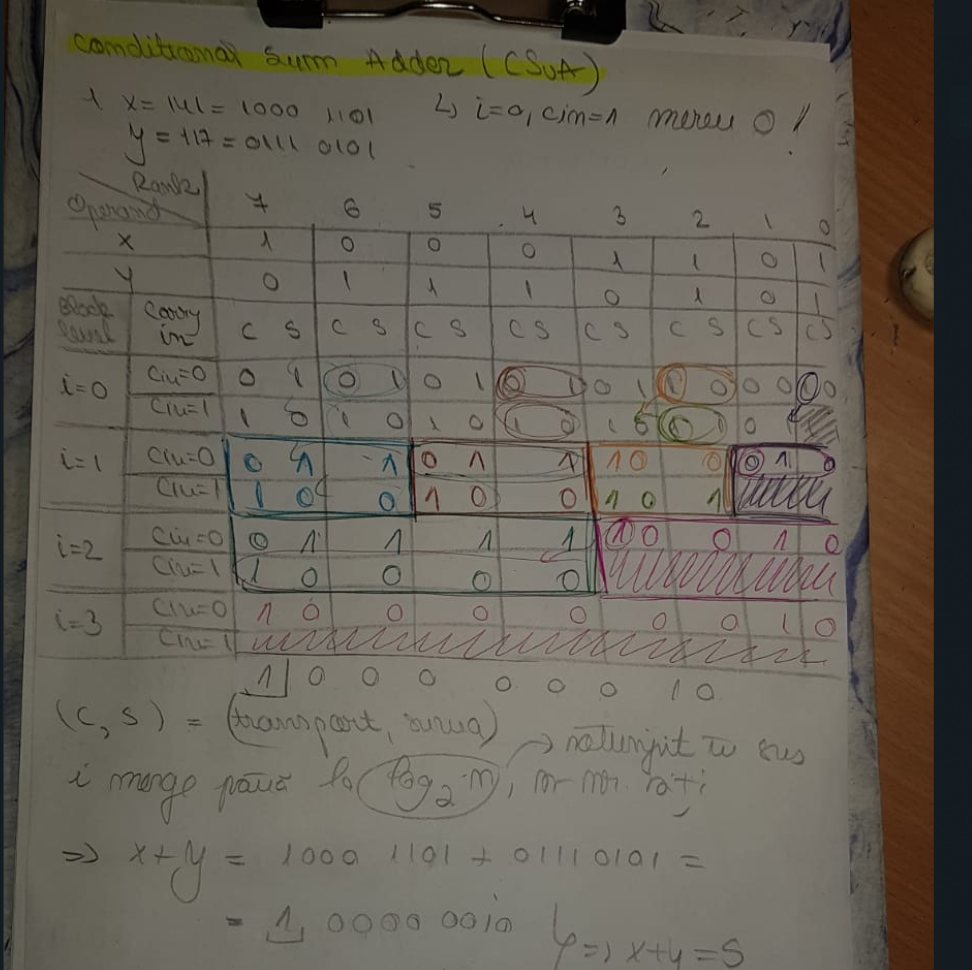 Conditional Sum Adder (CSuA)
1 x = 141 = 1000 1101 ↳ i=0, cin=1 mereu 0 !
y = 117 = 0111 0101
Rank 7 6 5 4 3 2 1 0
Operand
x 1 0 0 0 1 1 0 1
y 0 1 1 1 0 1 0 1
Block level Carry in C S C S C S C S C S C S C S C S
i=0 Cin=0 0 1 0 1 0 1 0 1 0 1 1 0 0 0 0 0
Cin=1 1 0 1 0 1 0 1 0 1 0 1 1 0
i=1 Cin=0 0 1 1 0 1 1 1 0 0 0 1 0
Cin=1 1 0 0 1 0 0 1 0 1
i=2 Cin=0 0 1 1 1 1 1 0 0 1 0
Cin=1 1 0 0 0 0
i=3 Cin=0 1 0 0 0 0 0 0 1 0
Cin=1
1 0 0 0 0 0 0 1 0
(C, S) = (transport, suma) → rotunjit în sus
i merge până la log₂ n, n - nr. biți
=> x+y = 1000 1101 + 0111 0101 =
= 1 0000 0010 => x+y = S